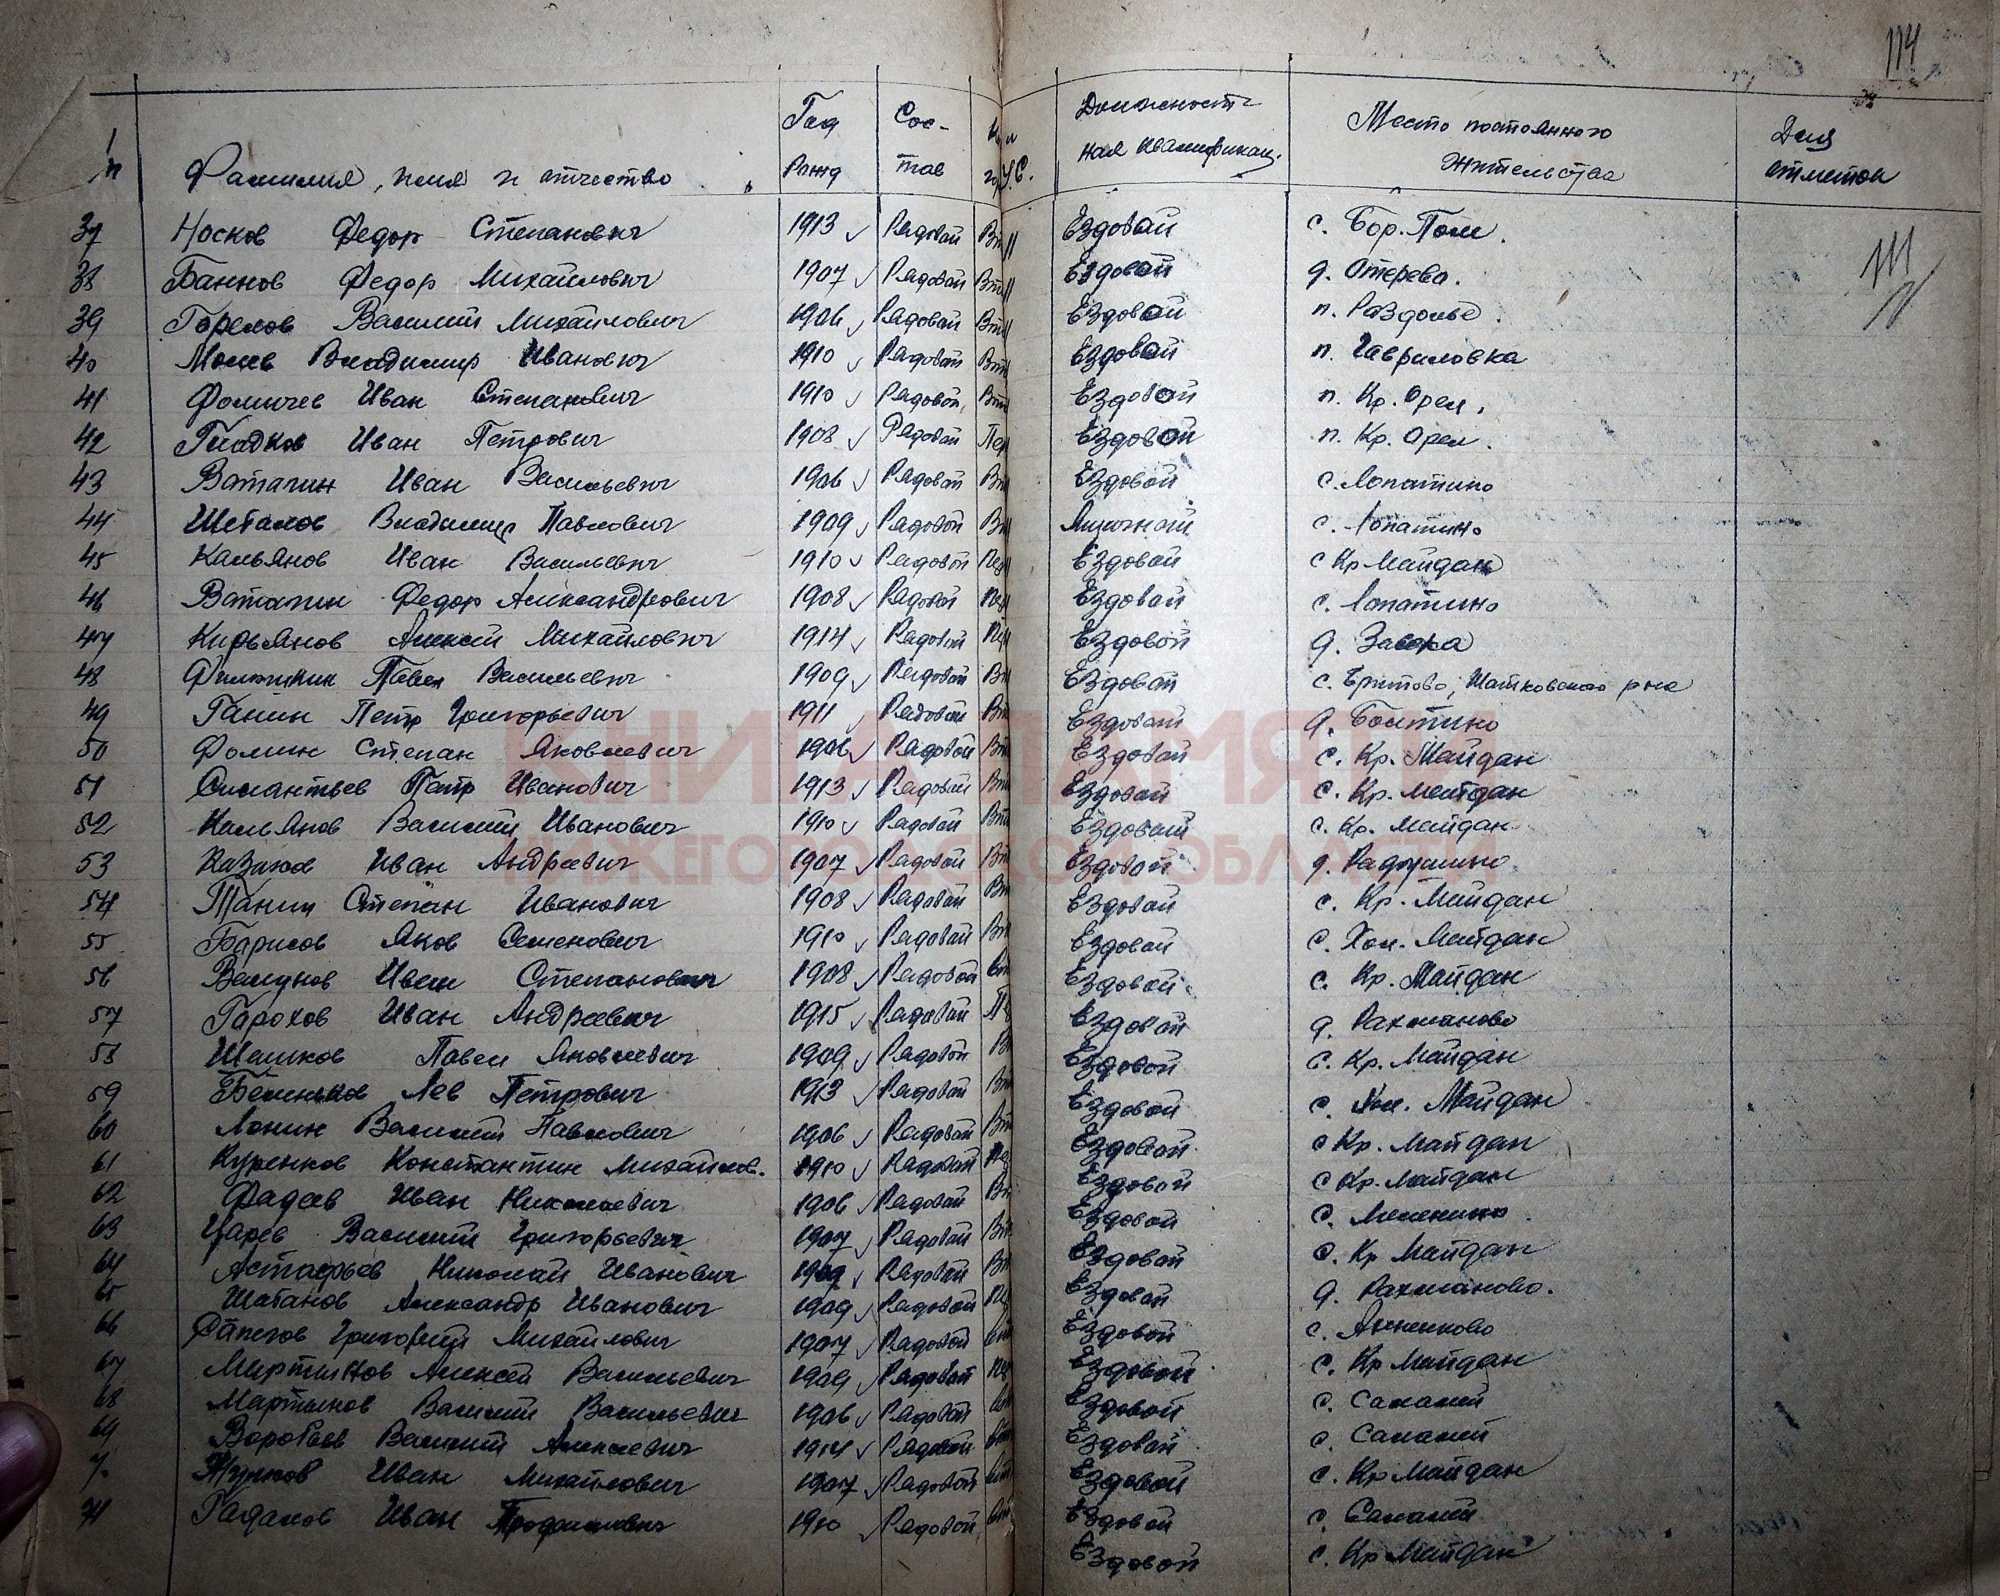 114
п Фамилия, имя и отчество Год рожд Сос-тав У.С. Должност ная квалификац. Место постоянного жительства Для отметок
37 Носков Федор Степанович 1913 Рядовой Вт Ездовой с. Бор. Пол.
38 Баннов Федор Михайлович 1907 Рядовой Вт Ездовой д. Отерево.
39 Горелов Василий Михайлович 1906 Рядовой Вт Ездовой п. Раздолье.
40 Владимир Иванович 1910 Рядовой Вт Ездовой п. Гавриловка
41 Фомичев Иван Степанович 1910 Рядовой Вт Ездовой п. Кр. Орел.
42 Гладков Иван Петрович 1908 Рядовой Пер Ездовой п. Кр. Орел.
43 Ватагин Иван Васильевич 1906 Рядовой Вт Ездовой с. Лопатино
44 Шеталов Владимир Павлович 1909 Рядовой Вт с. Лопатино
45 Кальянов Иван Васильевич 1910 Рядовой Пер Ездовой с Кр Майдан
46 Ватагин Федор Александрович 1908 Рядовой Пер Ездовой с. Лопатино
47 Кирьянов Алексей Михайлович 1914 Рядовой Пер Ездовой д.
48 Павел Васильевич 1909 Рядовой Вт Ездовой с. Шатковского р на
49 Ганин Петр Григорьевич 1911 Рядовой Вт Ездовой д. Болтино
50 Фомин Степан Яковлевич 1906 Рядовой Вт Ездовой с. Кр. Майдан
51 Силантьев Петр Иванович 1913 Рядовой Вт Ездовой с. Кр. Майдан
52 Кальянов Василий Иванович 1910 Рядовой Вт Ездовой с. Кр. Майдан
53 Казаков Иван Андреевич 1907 Рядовой Вт Ездовой д.
54 Танин Степан Иванович 1908 Рядовой Вт Ездовой с. Кр. Майдан
55 Борисов Яков Семенович 1910 Рядовой Вт Ездовой с. Хол. Майдан
56 Иван Степанович 1908 Рядовой Вт Ездовой с. Кр. Майдан
57 Горохов Иван Андреевич 1915 Рядовой Пе Ездовой д. Рахманово
58 Шашков Павел Яковлевич 1909 Рядовой В Ездовой с. Кр. Майдан
59 Беленьков Лев Петрович 1913 Рядовой Вт Ездовой с. Хол. Майдан
60 Лонин Василий Павлович 1906 Рядовой Вт Ездовой с Кр. Майдан
61 Куренков Константин Михайлов. 1910 Рядовой Пе Ездовой с Кр. Майдан
62 Фадеев Иван Николаевич 1906 Рядовой Вт Ездовой с.
63 Царев Василий Григорьевич 1907 Рядовой Вт Ездовой с. Кр Майдан
64 Астафьев Николай Иванович 1909 Рядовой Вт Ездовой д. Рахманово.
65 Шатанов Александр Иванович 1909 Рядовой Ездовой с. Анненково
66 Сапегов Григорий Михайлович 1907 Рядовой Вт Ездовой с. Кр Майдан
67 Мартынов Алексей Васильевич 1909 Рядовой Пер Ездовой с. Саканей
68 Мартынов Василий Васильевич 1906 Рядовой Ездовой с. Саканей
69 Воробьев Василий Алексеевич 1914 Рядовой Вт Ездовой с. Кр Майдан
70 Жуков Иван Михайлович 1907 Рядовой Вт Ездовой с. Саканей
71 Гадалов Иван Трофимович 1910 Рядовой Вт Ездовой с. Кр Майдан
КНИГА ПАМЯТИ
НИЖЕГОРОДСКОЙ ОБЛАСТИ